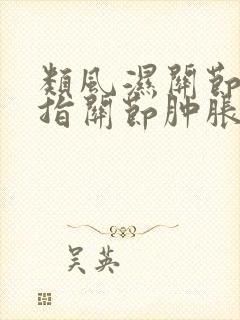 類風濕關節
指關節肿脹
吴英